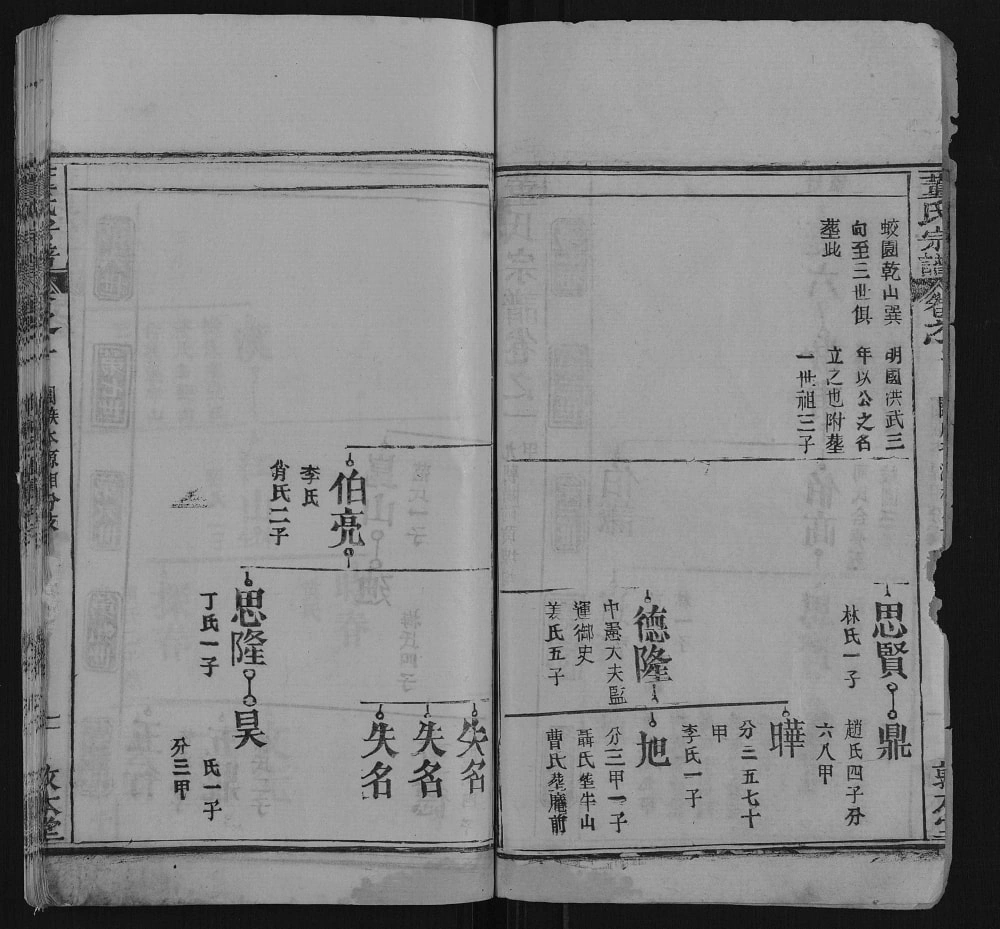 董氏宗譜
卷之一
敦本堂
蛟園乾山巽
向至三世俱
塟此
明國洪武三
年以公之名
立之也附塟
一世祖三子
思賢
林氏一子
鼎
趙氏四子分
六八甲
曄
分二五七十
甲
李氏一子
德隆
中憲大夫監
運御史
姜氏五子
旭
分三甲一子
聶氏塋牛山
曹氏塟庵前
失名
失名
失名
伯亮
李氏
肖氏二子
思隆
丁氏一子
昊
氏一子
分三甲